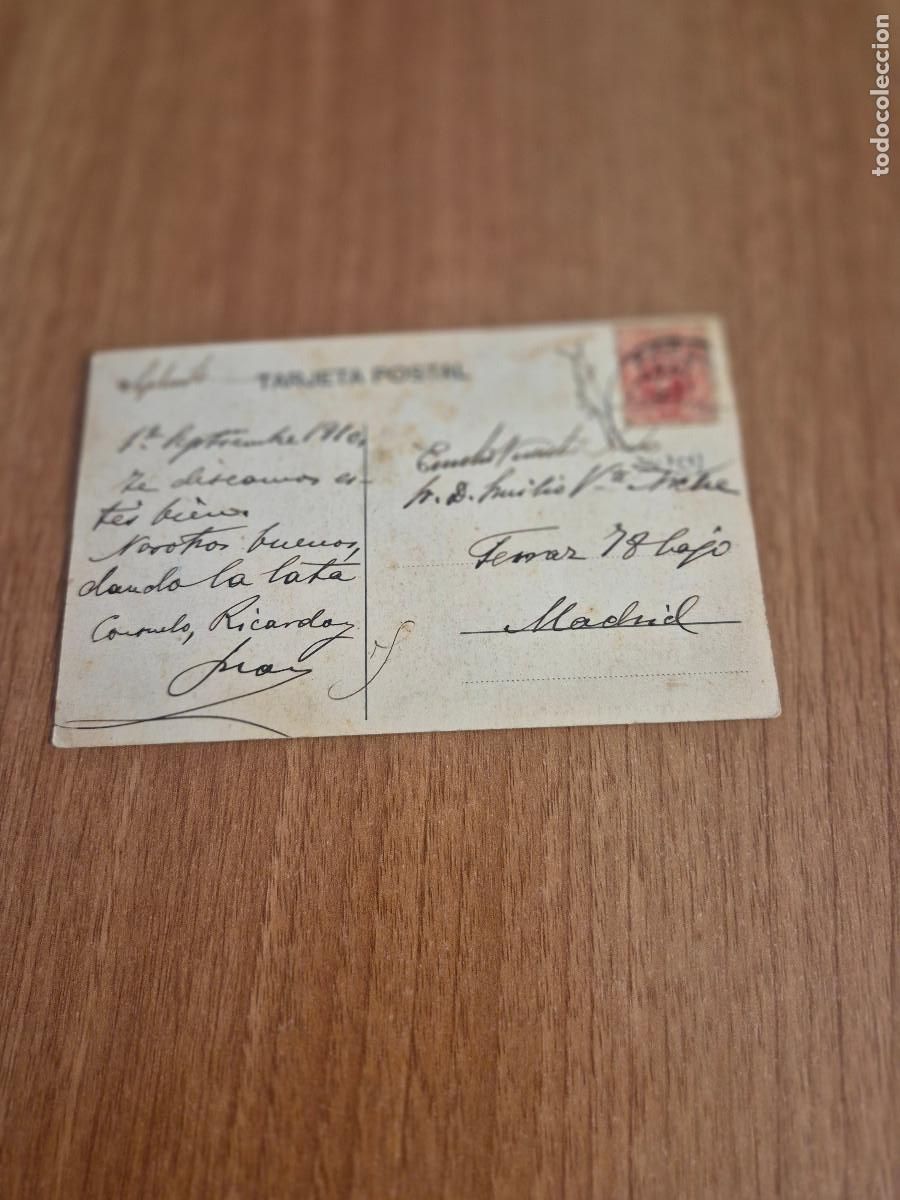 todocoleccion
TARJETA POSTAL
1º Septiembre 1910.
Te deseamos es-
tés bien.
Nosotros buenos,
dando la lata
Consuelo, Ricardo y
Juan
Sr. D. Emilio
Ferraz 78 bajo
Madrid